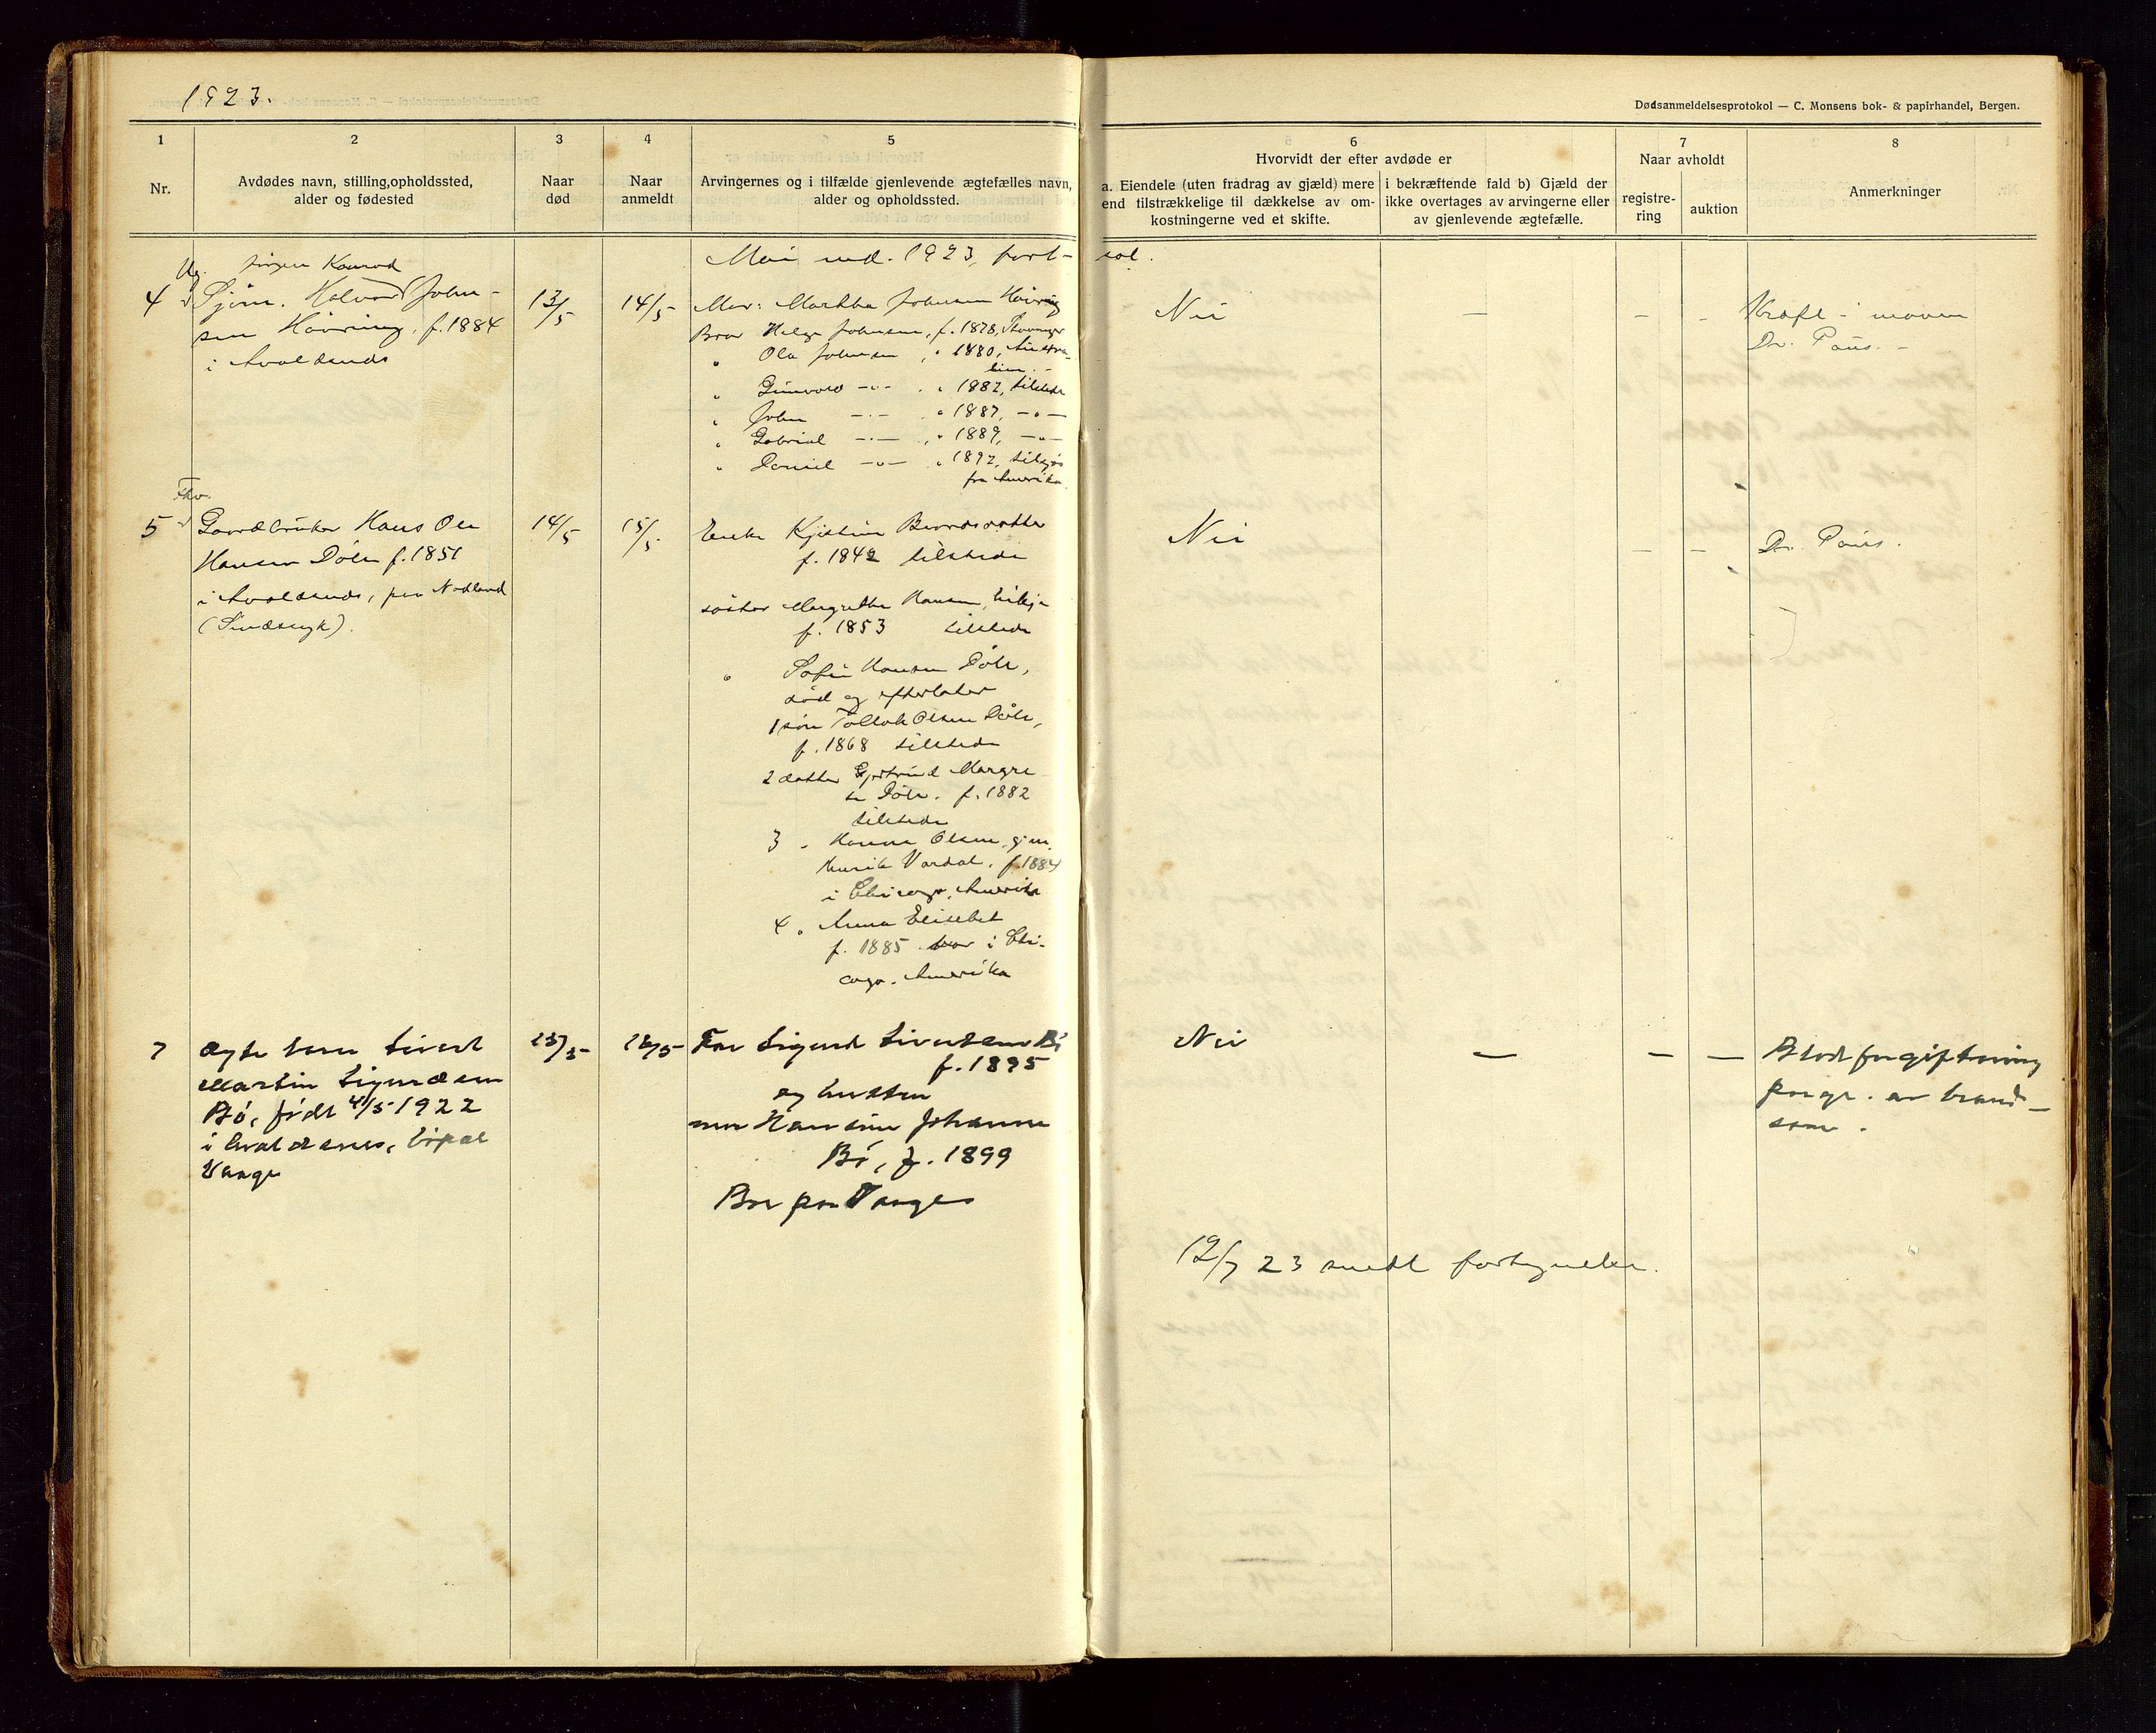 1923.
Dødsanmeldelsesprotokol — C. Monsens bok- & papirhandel, Bergen.
1
2
3
4
5
6
7
8
Nr.
Avdødes navn, stilling, opholdssted,
alder og fødested
Naar
død
Naar
anmeldt
Arvingernes og i tilfælde gjenlevende ægtefælles navn,
alder og opholdssted.
Hvorvidt der efter avdøde er
a. Eiendele (uten fradrag av gjæld) mere
end tilstrækkelige til dækkelse av om-
kostningerne ved et skifte.
i bekræftende fald b) Gjæld der
ikke overtages av arvingerne eller
av gjenlevende ægtefælle.
Naar avholdt
registre-
ring
auktion
Anmerkninger
Mai md. 1923, fort-
sat.
Ug. Jørgen Konrad
4 Sjøm. Halvor John-
sen Høvring, f. 1884
i Avaldsnes
13/5
14/5
Mor: Martha Johnsen Høvring
Bror Helge Johnsen, f. 1878, Stavanger
" Ola Johnsen, " 1880, Austra-
lien. -
" Gunvald -"- " 1882, tilstede
" John -"- " 1887, -"-
" Gabriel -"- " 1889, -"-
" Daniel -"- " 1892,
fra Amerika.
Nei
—
-
-
Kræft i maven
Dr. Paus. -
5
Gaardbruker Hans Ole
Hansen Døle f. 1851
i Avaldsnes, paa Nodland
(Sindssyk).
14/5
15/5
Enke Kjistine
f. 1842 tilstede
søster Margrethe Hansen,
f. 1853 tilstede
" Sofie Hansen Døle,
død og efterlater
1 søn Tollak Olsen Døle,
f. 1868 tilstede
2 datter Gjertrud Margre
te Døle. f. 1882
tilstede
3 " Hanna Olsen, gm.
Henrik Vardal. f. 1884
i Chicago, Amerika
4 " Anna Elisebet
f. 1885 bor i Chi-
cago. Amerika
Nei
—
—
Dr. Paus.
7 Ægte barn Sivert
Martin Sigurdsen
Bø, født 4/5 1922
i Avaldsnes, bopæl
Vaage
13/5
16/5
Far Sigurd Sivertsen Bø
f. 1895
og hustru
mor Hansine Johanne
Bø, f. 1899
Bor paa Vaage
Nei
—
—
—
Blodforgiftning
paagr. av brand-
saar.
19/7 23 sendt fortegnelse.